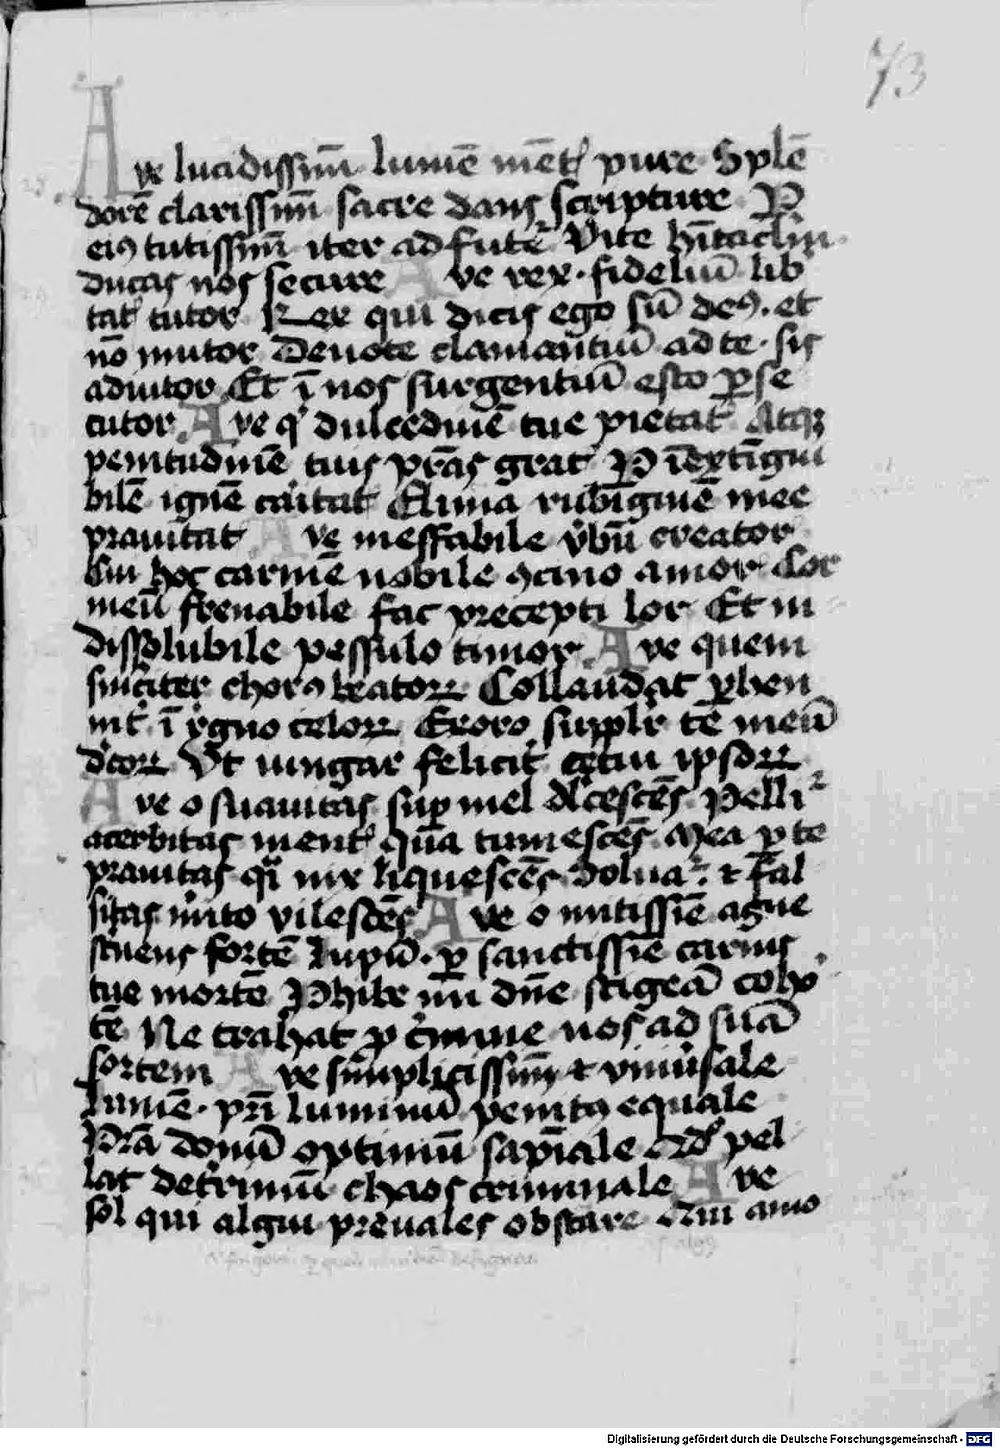 73
Ave lucidissimū lumē mēt pure Splē
dorē clarissimū sacre dans scripture P
eiꝰ tutissimū iter ad fute Vite
ducas nos secure Ave rex · fideliū lib
tat tutor Rex qui dicis ego sū deꝰ · et
nō mutor Devote clamantiū ad te · sis
adiutor Et ī nos surgentiū esto ꝑse
cutor Ave q dulcedinē tue pietat Atqꝫ
penitudinē tuis p̄ras grat P īextīgui
bilē ignē cāitat Elima rubiginē mee
pravitat Ave ineffabile v̄bū creator
Cui hoc carmē nobile ꝯcino amor Cor
meū frenabile fac precepti lor Et in
dissolubile pessulo timor Ave quem
sinc̄iter chorꝰ beatoꝝ Collaudat ꝑhen
nit ī regno celoꝝ Exoro supplr tē meū
dcoꝝ Vt iungar felicit cetui ipsoꝝ
Ave o suavitas suꝑ mel dlcescēs Pelli
acerbitas ment quā tumescēs Mea ꝑ te
pravitas qi nix liquescēs Solvat · et fal
sitas vilescēs Ave o mitissīe agne
fortē lupū · ꝑ sanctissīe carnis
tue mortē Phibe dn̄e stigeā coho
tē Ne trahat ꝑ cimine nos ad suā
sortem Ave simplicissimū et univsale
Lumē · pri luminū penitꝰ equale
P̄ra donū optimū sapīale Qd pel
lat detrimū chaos criminale Ave
sol qui algui prevales obstare Cui amo
Digitalisierung gefördert durch die Deutsche Forschungsgemeinschaft - DFG